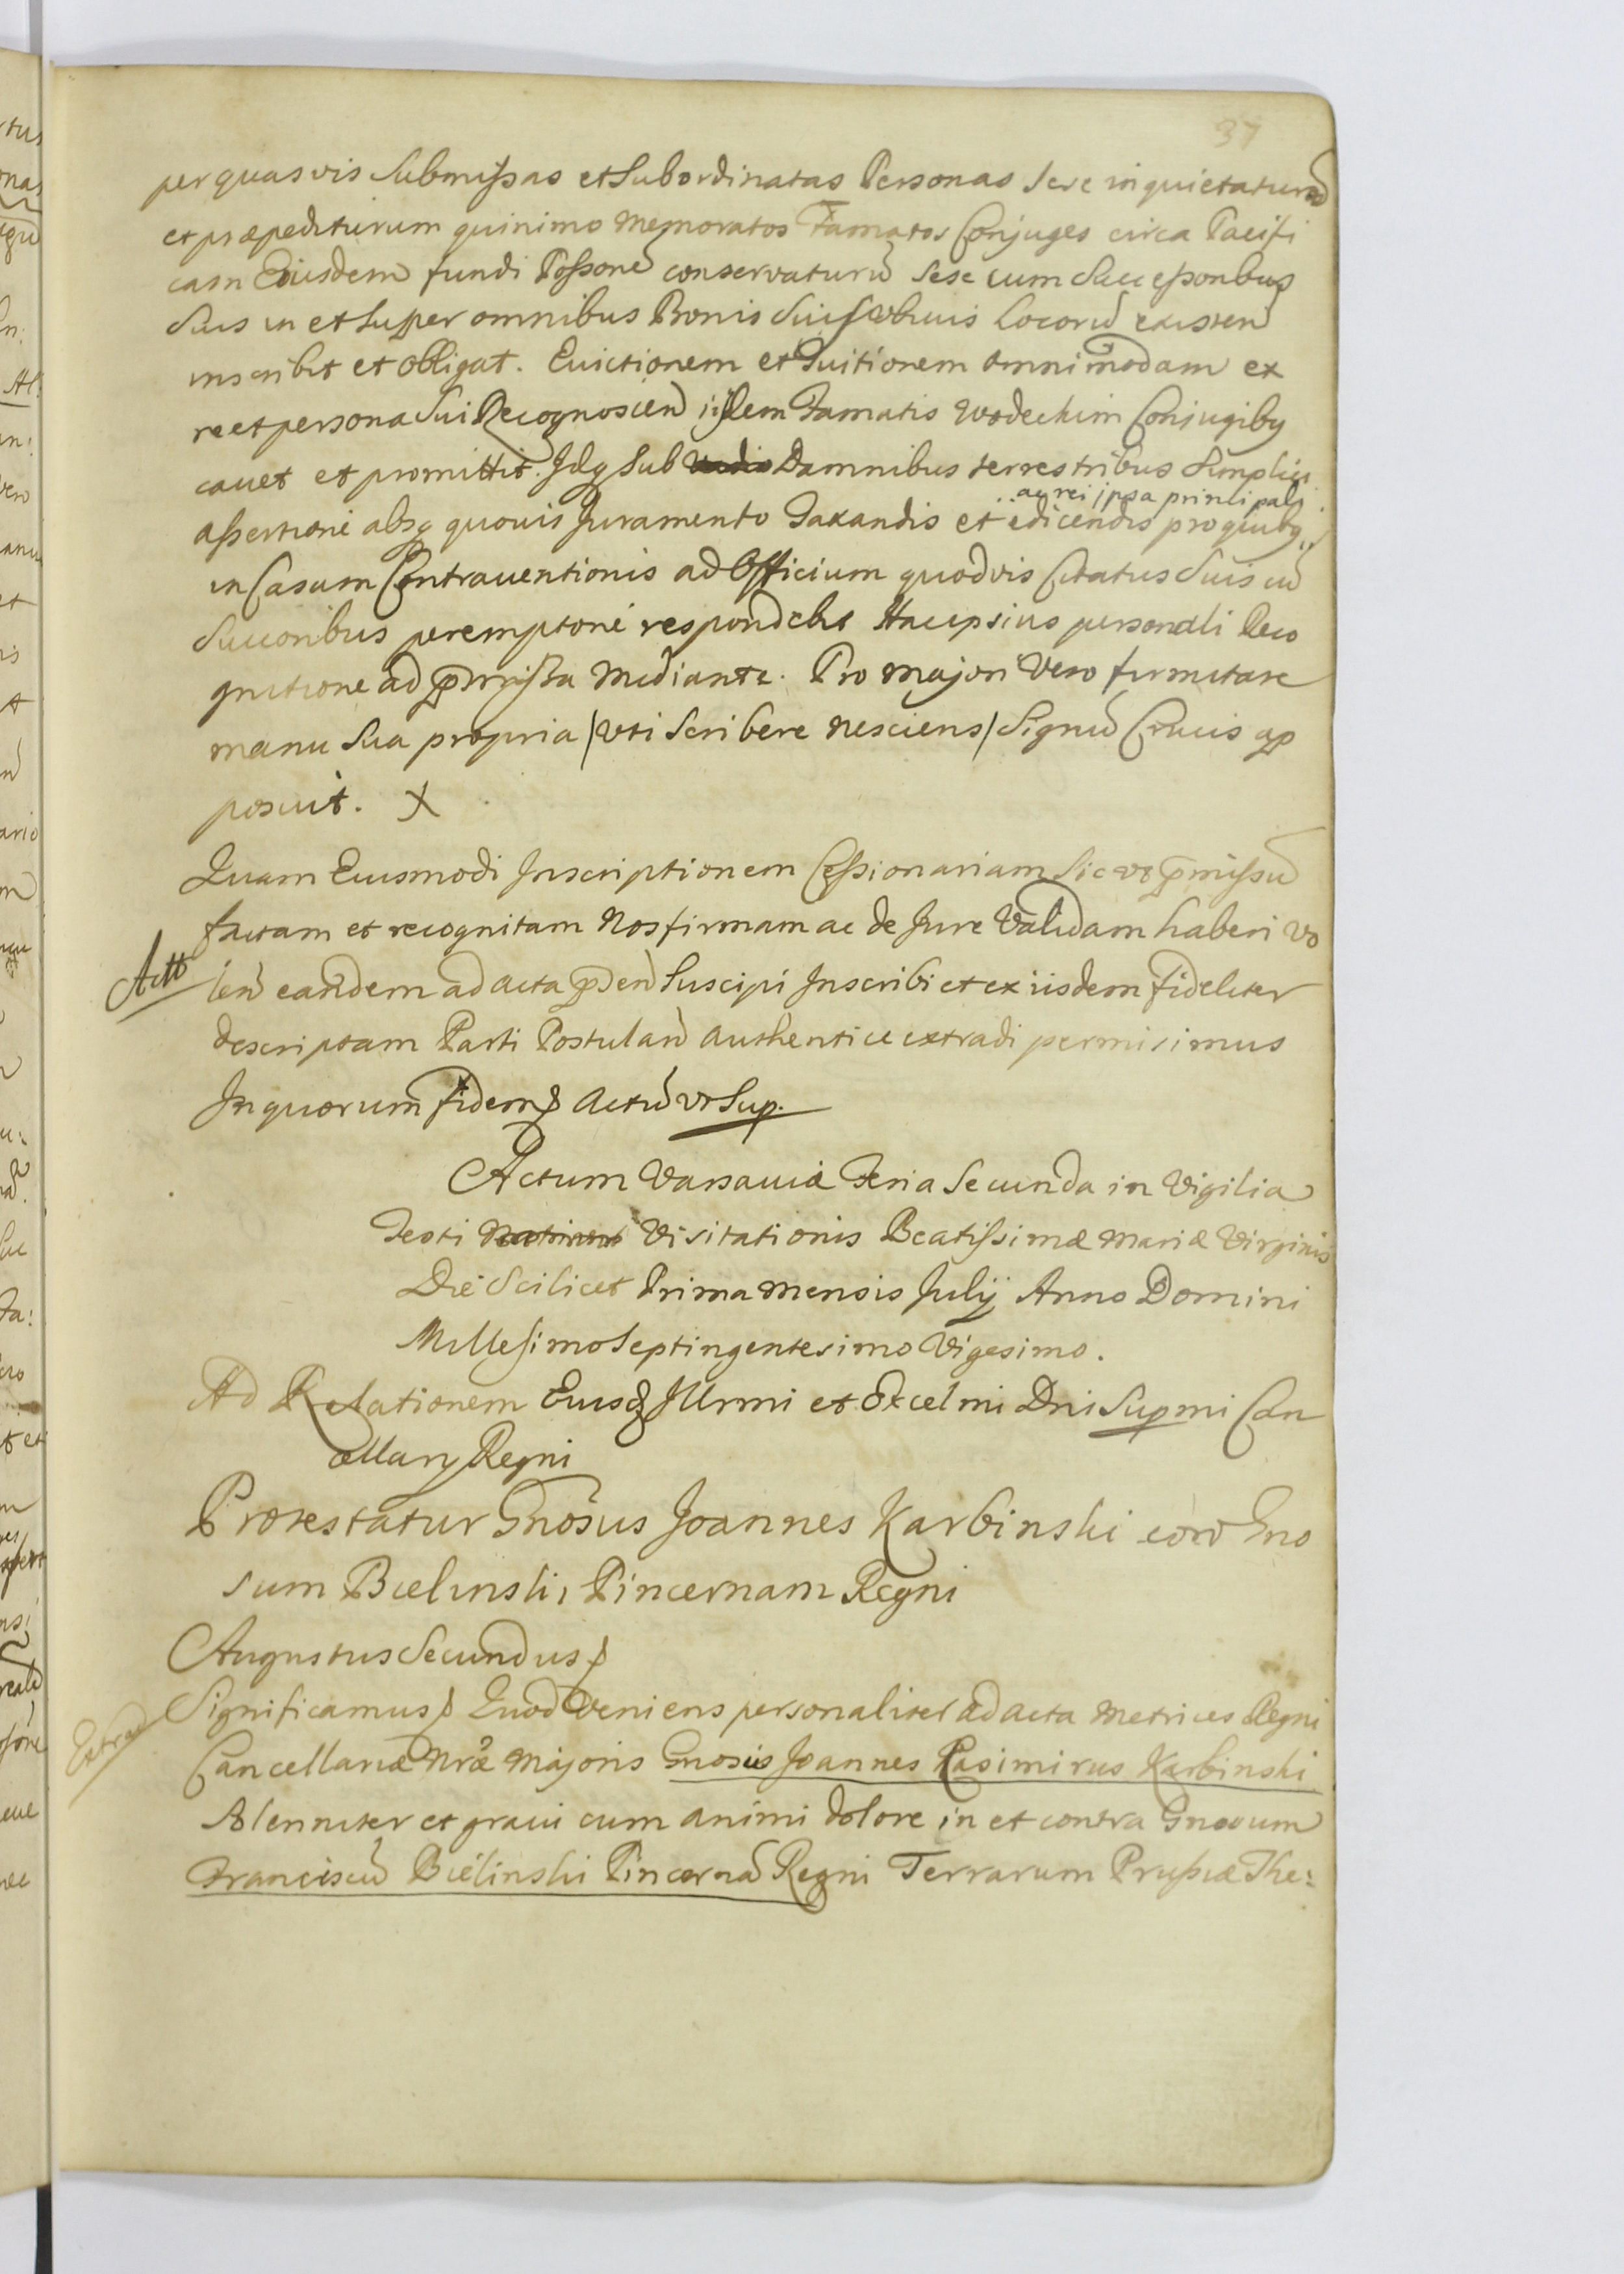 37
per quasvis Submissas et Subordinatas Personas sese inquietaturū
et præpediturum quinimo Memoratos Famatos Conjuges circa Pacifi
cam Eiusdem fundi Possonē conservaturū sese cum Successoribus
Suis in et super omnibus Bonis Suis Vbiuis Locorū existen̄
inscribit et obligat. Euictionem et Tuitionem omnimodam ex
re et persona Sui Recognoscen̄ iisdem Famatis Wodechim Conjugibq
cauet et promittit. Idq sub Damnibus terrestribus Simplici
ac rei ipsa principali
assertione absq quouis Juramento Taxandis et edicendis pro quibq
in Casum Contrauentionis ad Officium quodvis Citatus Suis cū
Succoribus peremptorie respondebit Hac ipsius personali Reco
gnitione ad p̄missa Mediante. Pro Majori Vero firmitate
manu Sua propria /Vti Scribere nesciens/ Signū Crucis ap
posuit. X
Quam Eiusmodi Inscriptionem Cessionariam Sic vt p̄missū
factam et recognitam Nos firmam ac de Jure Validam haberi vo
Actt
len̄ eandem ad acta p̄den̄ Suscipi Inscribi et ex iisdem fideliter
descriptam Parti Postulan̄ authentice extradi permisimus
In quorum fidem & Actū vt Sup.
Actum Varsauiæ Feria Secunda in Vigilia
Festi Visitationis Beatissimæ Mariæ Virginis
Die Scilicet Prima Mensis Julij Anno Domini
Millesimo Septingentesimo Vigesimo.
Ad Relationem Eiusd Illrmi et Excelmi Dni Supmi Can
cellarij Regni
Protestatur Gnōsus Joannes Karbinski corō Gno
sum Bielinski, Pincernam Regni
Augustus Secundus &
Significamus & Quod Veniens personaliter ad acta Metrices Regni
Extrad
Cancellariæ Nræ Majoris Gnosus Joannes Kasimirus Karbinski
Solenniter et graui cum animi dolore in et contra Gnosum
Franciscū Bielinski Pincernā Regni Terrarum Prussiæ The: